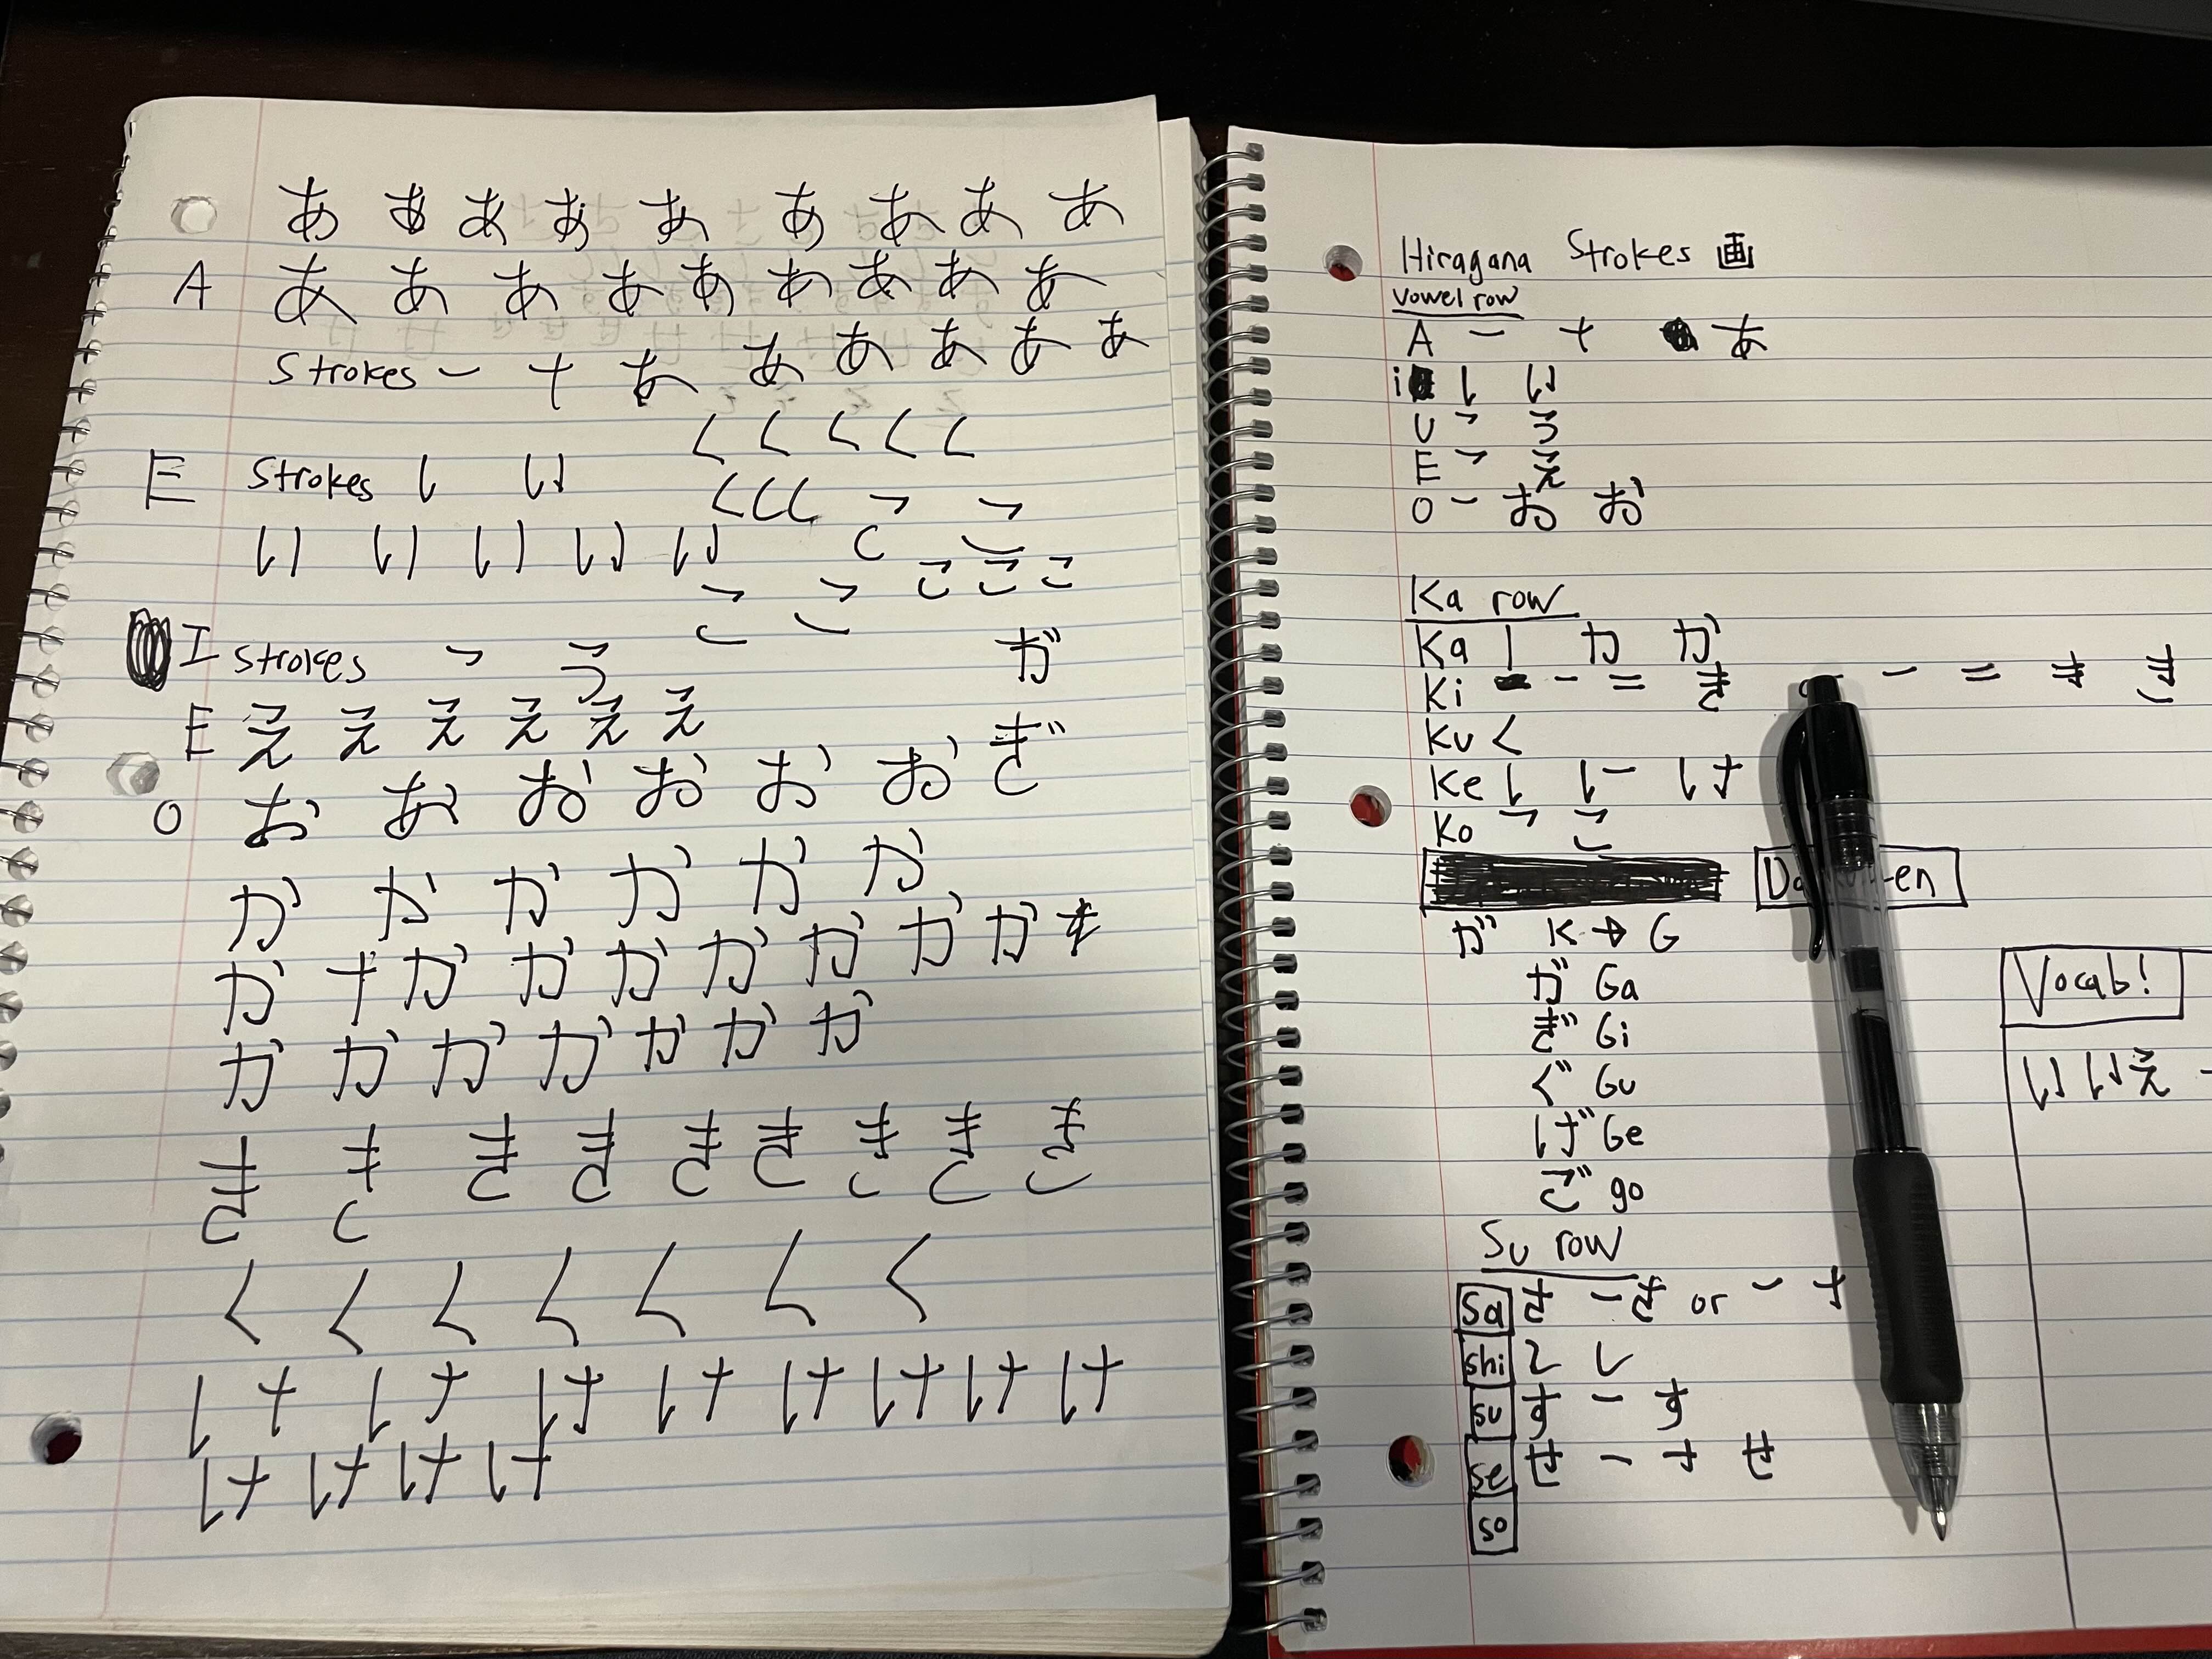 あ あ あ あ あ あ あ あ あ
A あ あ あ あ あ あ あ あ あ
Strokes 一 十 あ あ あ あ あ あ
く く く く く
E Strokes し い
く く く つ こ
い い い い い こ こ こ
こ こ
I Strokes つ う が
E え え え え え え
ぎ
O お お お お お お
か か か か か か
か か か か か か か か き
か か か か か か か
き き き き き き き き き
く く く く く く く
け け け け け け け け
け け け け
Hiragana Strokes 画
Vowel row
A 一 十 あ
i し い
U う
E え
O 一 お お
Ka row
Ka | カ か
Ki 一 二 き 一 二 き き
Ku く
Ke し し一 け
Ko こ
が K → G
が Ga
ぎ Gi
ぐ Gu
げ Ge
ご go
Su row
Sa さ 一 さ or 一 さ
Shi し し
Su す 一 す
Se せ 一 さ せ
So
Vocab!
いいえ -